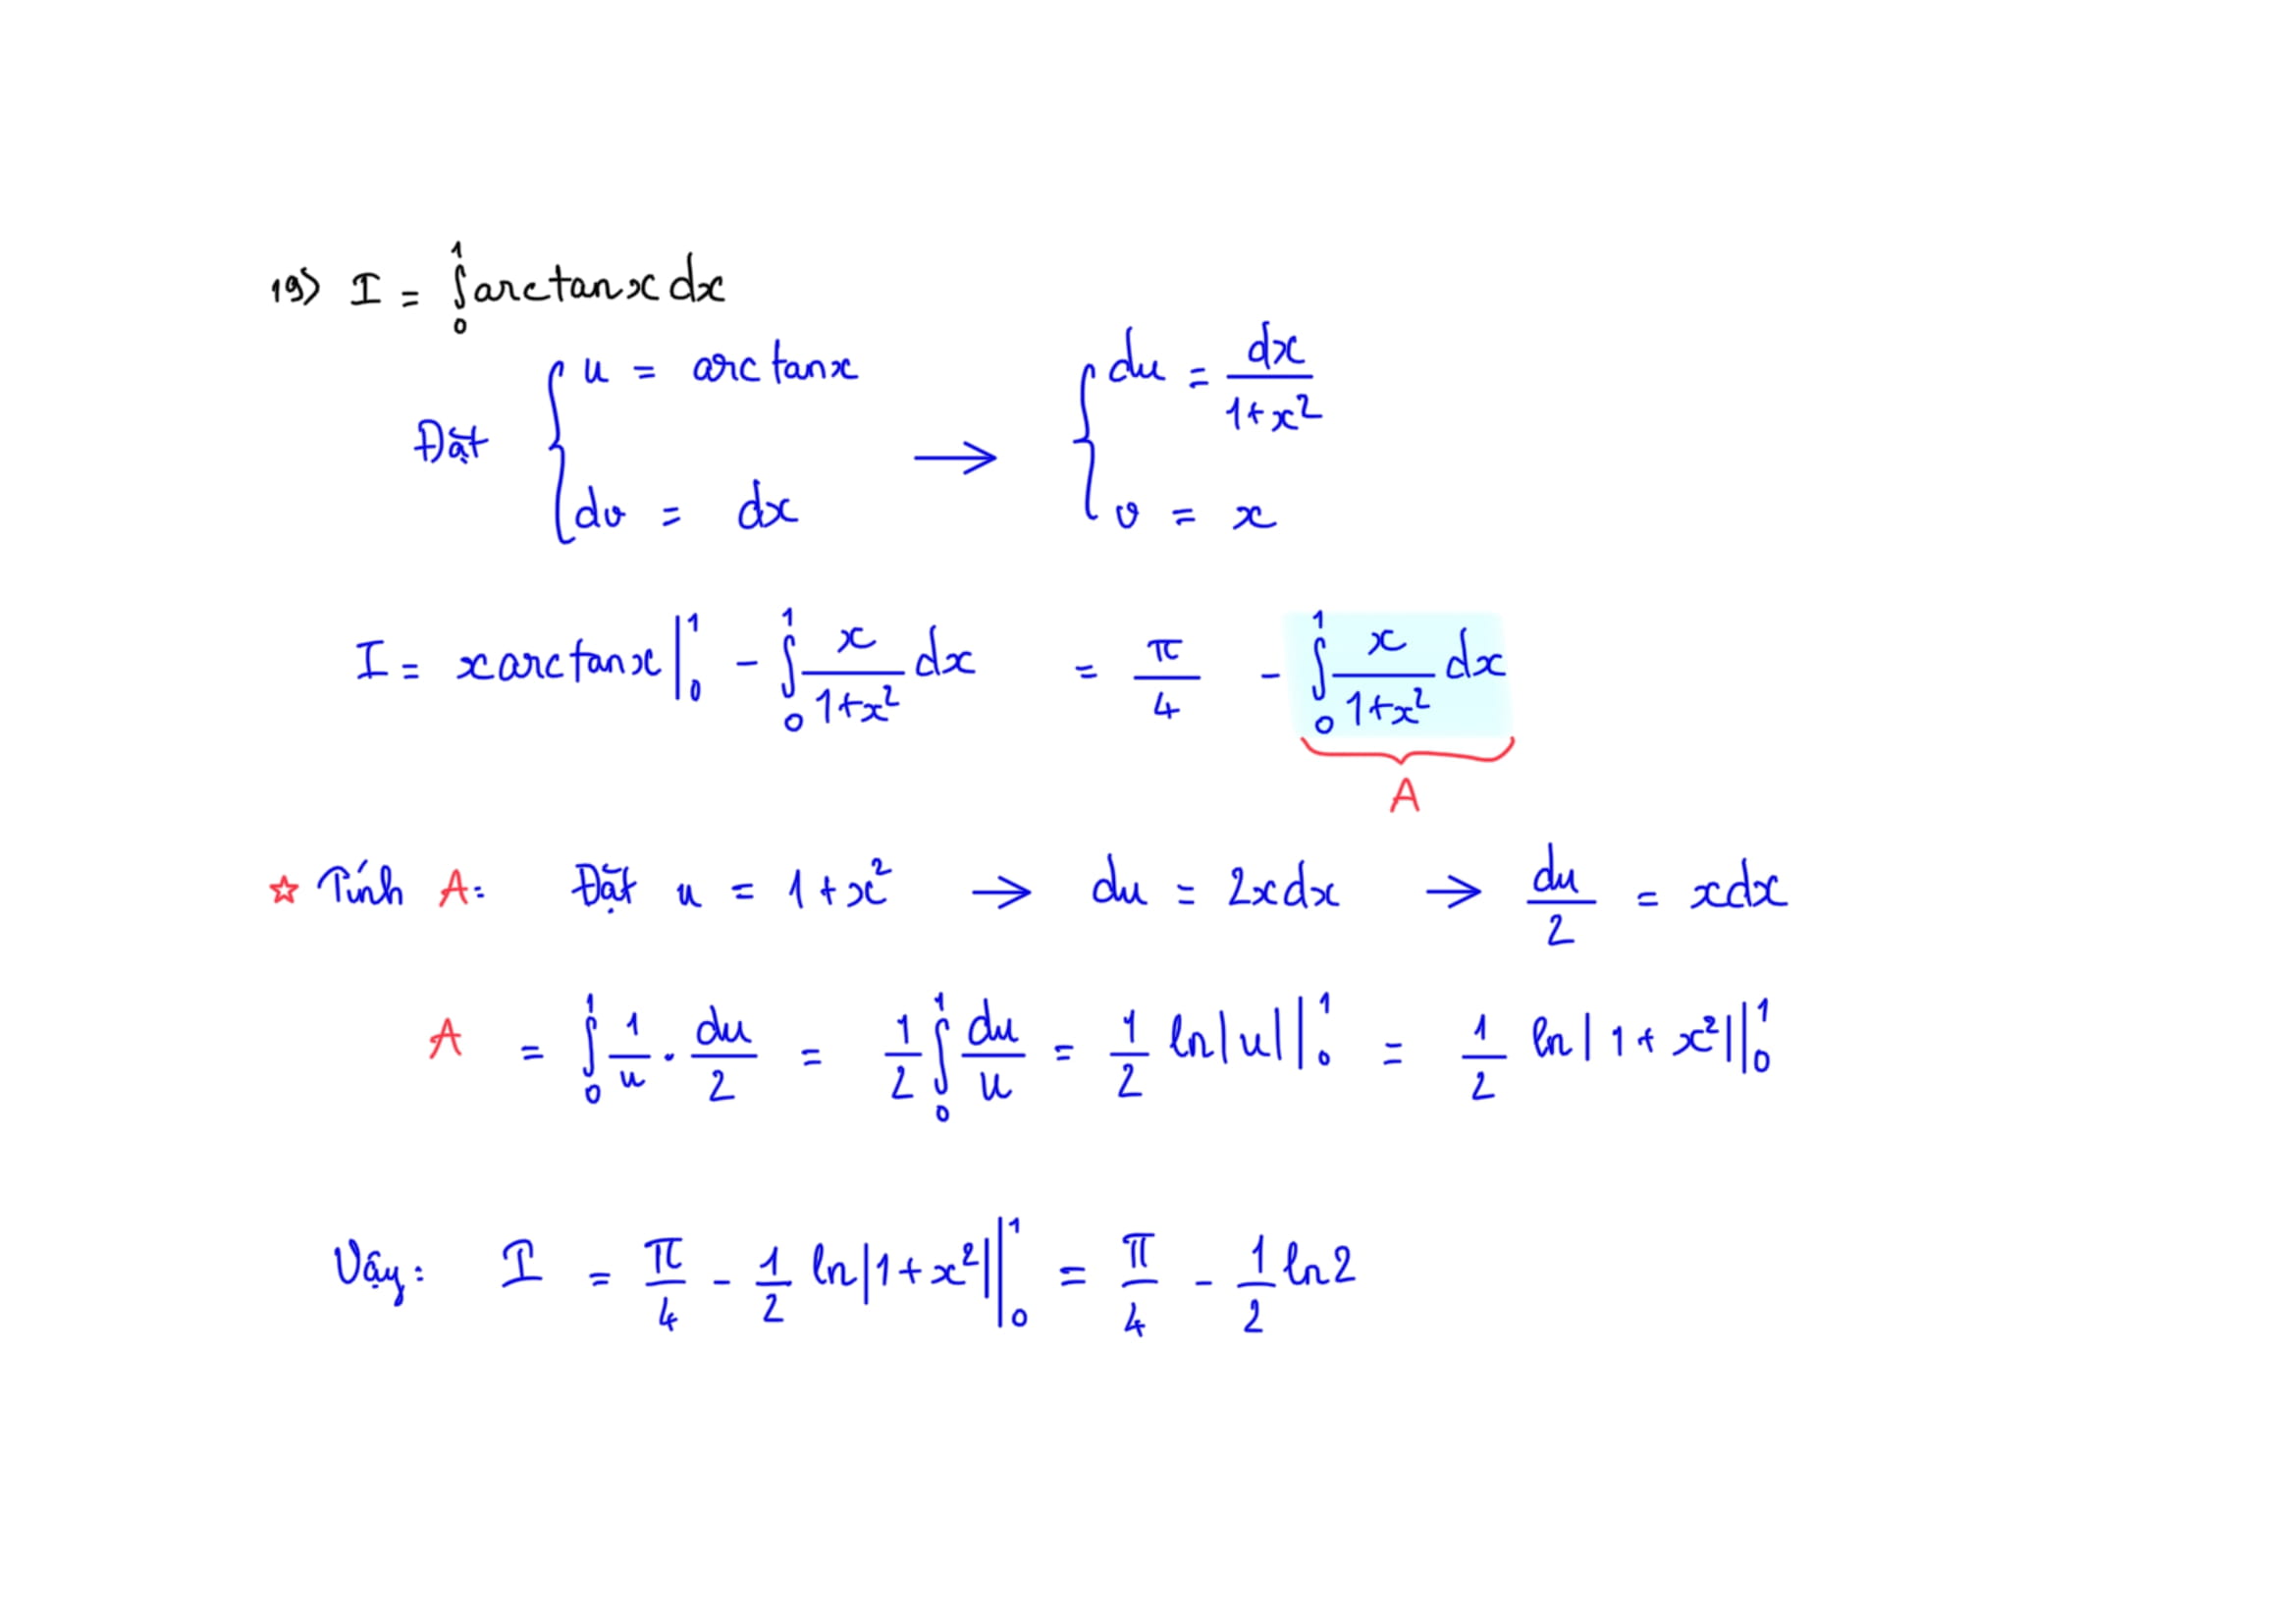 19) I = ∫₀¹ arctanx dx
Đặt { u = arctanx ; dv = dx → { du = dx/(1+x²) ; v = x
I = xarctanx |₀¹ - ∫₀¹ x/(1+x²) dx = π/4 - ∫₀¹ x/(1+x²) dx
A
☆ Tính A: Đặt u = 1 + x² → du = 2xdx → du/2 = xdx
A = ∫₀¹ 1/u · du/2 = 1/2 ∫₀¹ du/u = 1/2 ln|u| |₀¹ = 1/2 ln|1 + x²| |₀¹
Vậy: I = π/4 - 1/2 ln|1+x²| |₀¹ = π/4 - 1/2 ln2